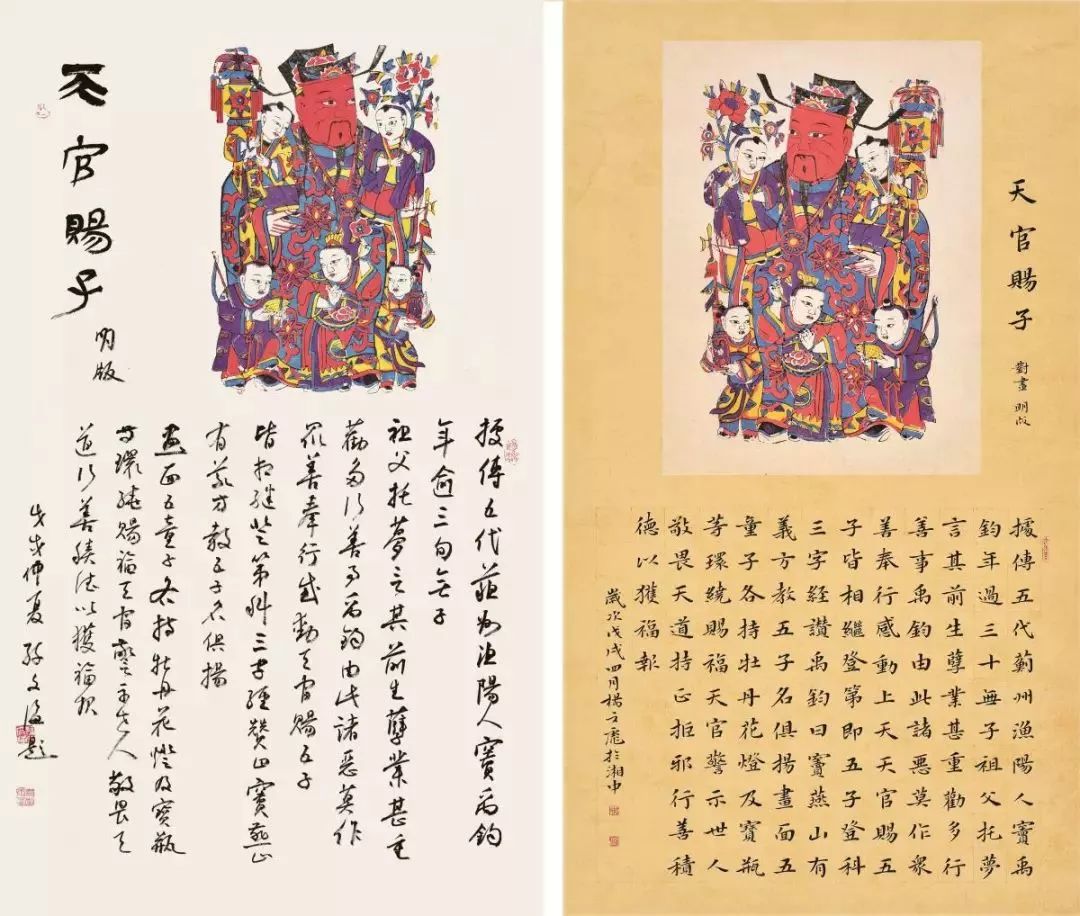 天官賜子
明版
據傳五代薊州漁陽人竇禹鈞
年逾三旬無子
祖父托夢言其前生孽業甚重
勸多行善事禹鈞由此諸惡莫作
眾善奉行感動天官賜五子
皆相繼登第科三字經贊曰竇燕山
有義方教五子名俱揚
畫面五童子各持牡丹花燈及寶瓶
等環繞賜福天官警示世人敬畏天
道行善積德以獲福報
戊戌仲夏 孫文題
天官賜子
對畫 明版
據傳五代薊州漁陽人竇禹
鈞年過三十無子祖父托夢
言其前生孽業甚重勸多行
善事禹鈞由此諸惡莫作衆
善奉行感動上天天官賜五
子皆相繼登第即五子登科
三字經讚禹鈞曰竇燕山有
義方教五子名俱揚畫面五
童子各持牡丹花燈及寶瓶
等環繞賜福天官警示世人
敬畏天道持正拒邪行善積
德以獲福報
歲次戊戌四月楊立彪於湘中